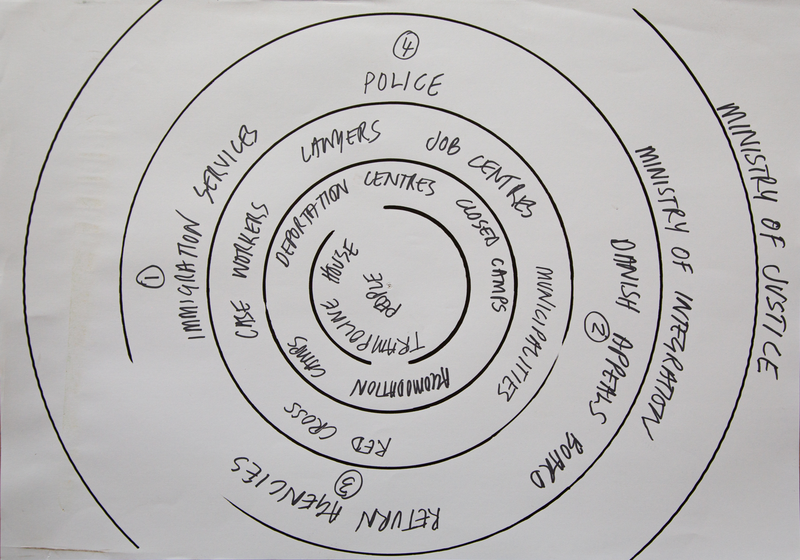 4
POLICE
LAWYERS
JOB CENTRES
IMMIGRATION SERVICES
1
CASE WORKERS
DEPORTATION CENTRES
CLOSED CAMPS
TRAMPOLINE HOUSE
PEOPLE
ACOMODATION CAMPS
MUNICIPALITIES
RED CROSS
DANISH APPEALS BOARD
2
3
RETURN AGENCIES
MINISTRY OF INTEGRATION
MINISTRY OF JUSTICE